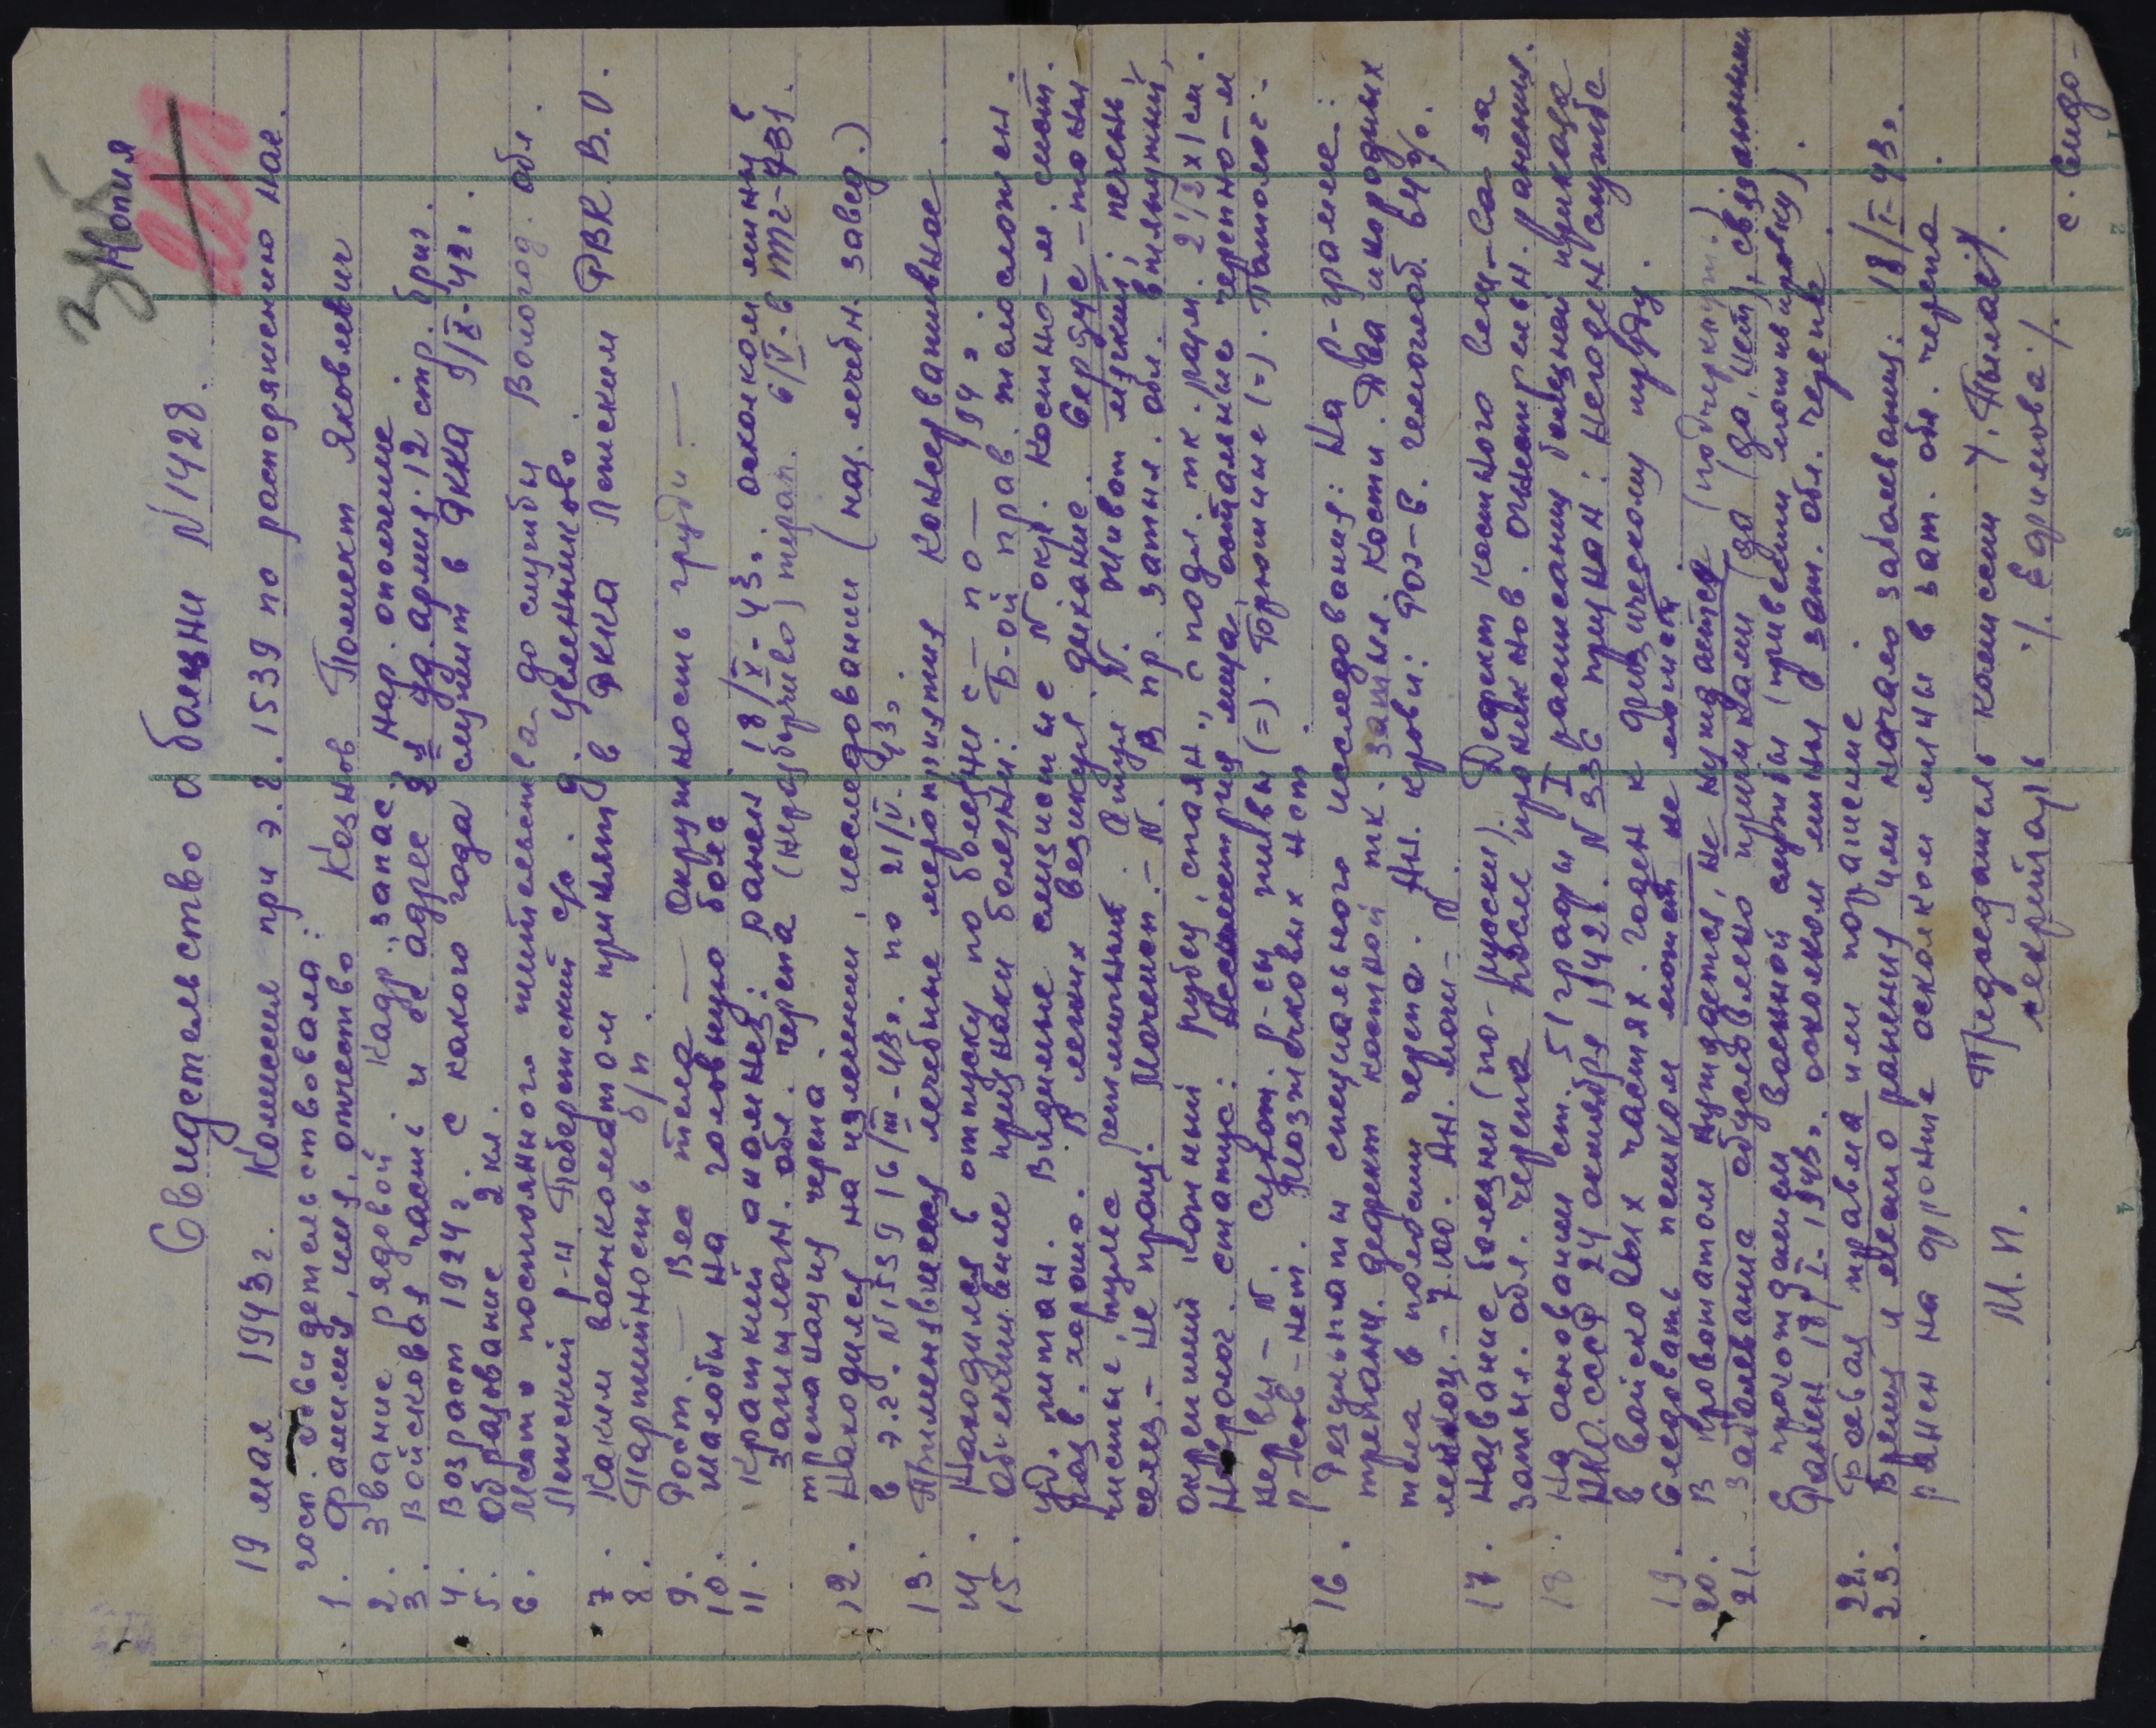 Копия
Свидетельство о болезни N 1428.
19 мая 1943 г. Комиссия при э.г. 1539 по распоряжению нач.
госп. освидетельствовала:
1. Фамилия, имя, отчество Козлов Полиект Яковлевич
2. Звание рядовой. Кадр., запас, нар. ополчение
3. Войсковая часть и её адрес 2 уд. армия 12 стр. бриг.
4. Возраст 1924 г. с какого года служит в РККА 9/IX-42 г.
5. Образование 2 кл.
6. Место постоянного жительства до службы Вологод. обл.
Ленский р-н Поберезский с/с. д. Цеменниково.
7. Каким военкоматом принят в РККА Ленским РВК. В.О.
8. Партийность б/п.
9. Рост. — Вес тела — Окружность груди: —
10. Жалобы на головную боль
11. Краткий анамнез: ранен 18/I-43 г. осколком мины в
затылочн. обл. черепа (неразборчиво) черап. 6/IV-в ЭГ-1331.
трепанация черепа.
12. Находился на излечении, исследовании (наз. лечебн. завед.)
в э.г. N 1539 16/III-43 г. по 21/V-43 г.
13. Применявшиеся лечебные мероприятия Консервативное
14. Находился в отпуску по болезни с — по — 194 г.
15. Объективные признаки болезни: Б-ой прав. телосложен.
уд. питан. Видимые слизистые N окр. Костно-м. сист.
разв. хорошо. В легких везикул. дыхание. Сердце - тоны
чистые, пульс ритмичный. Язык N. Живот мягкий, печень,
селез. - не прощ. Мочеисп. - N. В пр. затыл. обл. втянутый,
окрепший кожный рубец, спаян., с подл. тк. разм. 2 1/2 x 1 см.
Невролог. статус: Асимметрия лица, остальные черепно-м
нервы - N. Сухож. р-сы живы (=). Брюшные (=). Патолог.
р-сов - нет. Мозжечковых нет.
16. Результаты специального исследования: На R-грамме:
трепанац. дефект костной тк. затыл. кости. Два инородных
тела в полости черепа. Ан. крови: РОЭ-8. гемоглоб. 64%.
лейкоц. - 7.100. Ан. мочи - N.
17. Название болезни (по-русски): Дефект костного вещ-ва за
затыл. обл. черепа после проникнов. огнестрельн. ранения.
18. На основании ст. 51 графы I расписания болезней приказа
НКО. СССР 24 октября 1942 г. N 336 признан: Негоден к службе
в войсковых частях. годен к физическому труду.
19. Следовать пешком может, не может.
20. В провожатом нуждается, не нуждается (подчеркнуть.)
21. Заболевание обусловлено причинами (да, нет), связанными
с прохождением военной службы (привести мотивировку).
Ранен 18/I-1943 г. осколком мины в зат. обл. черепа.
22. Боевая травма или поражение.
23. Время и место ранения или начало заболевания: 18/I-43 г.
ранен на фронте осколком мины в зат. обл. черепа.
Председатель комиссии /. Пылаев/.
М.П. секретарь /. Ефимова /.
с. Сидо-